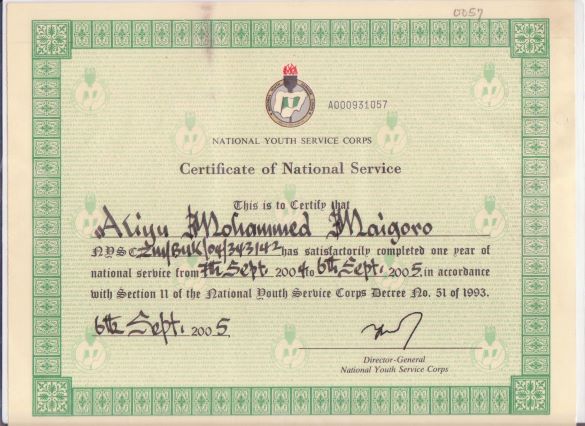 0057
A000931057
NATIONAL YOUTH SERVICE CORPS
Certificate of National Service
This is to Certify that
Aliyu Mohammed Maigoro
NYSC Zm/BUK/04/343142 has satisfactorily completed one year of
national service from 7th Sept. 2004 to 6th Sept. 2005 in accordance
with Section 11 of the National Youth Service Corps Decree No. 51 of 1993.
6th Sept. 2005
Director-General
National Youth Service Corps